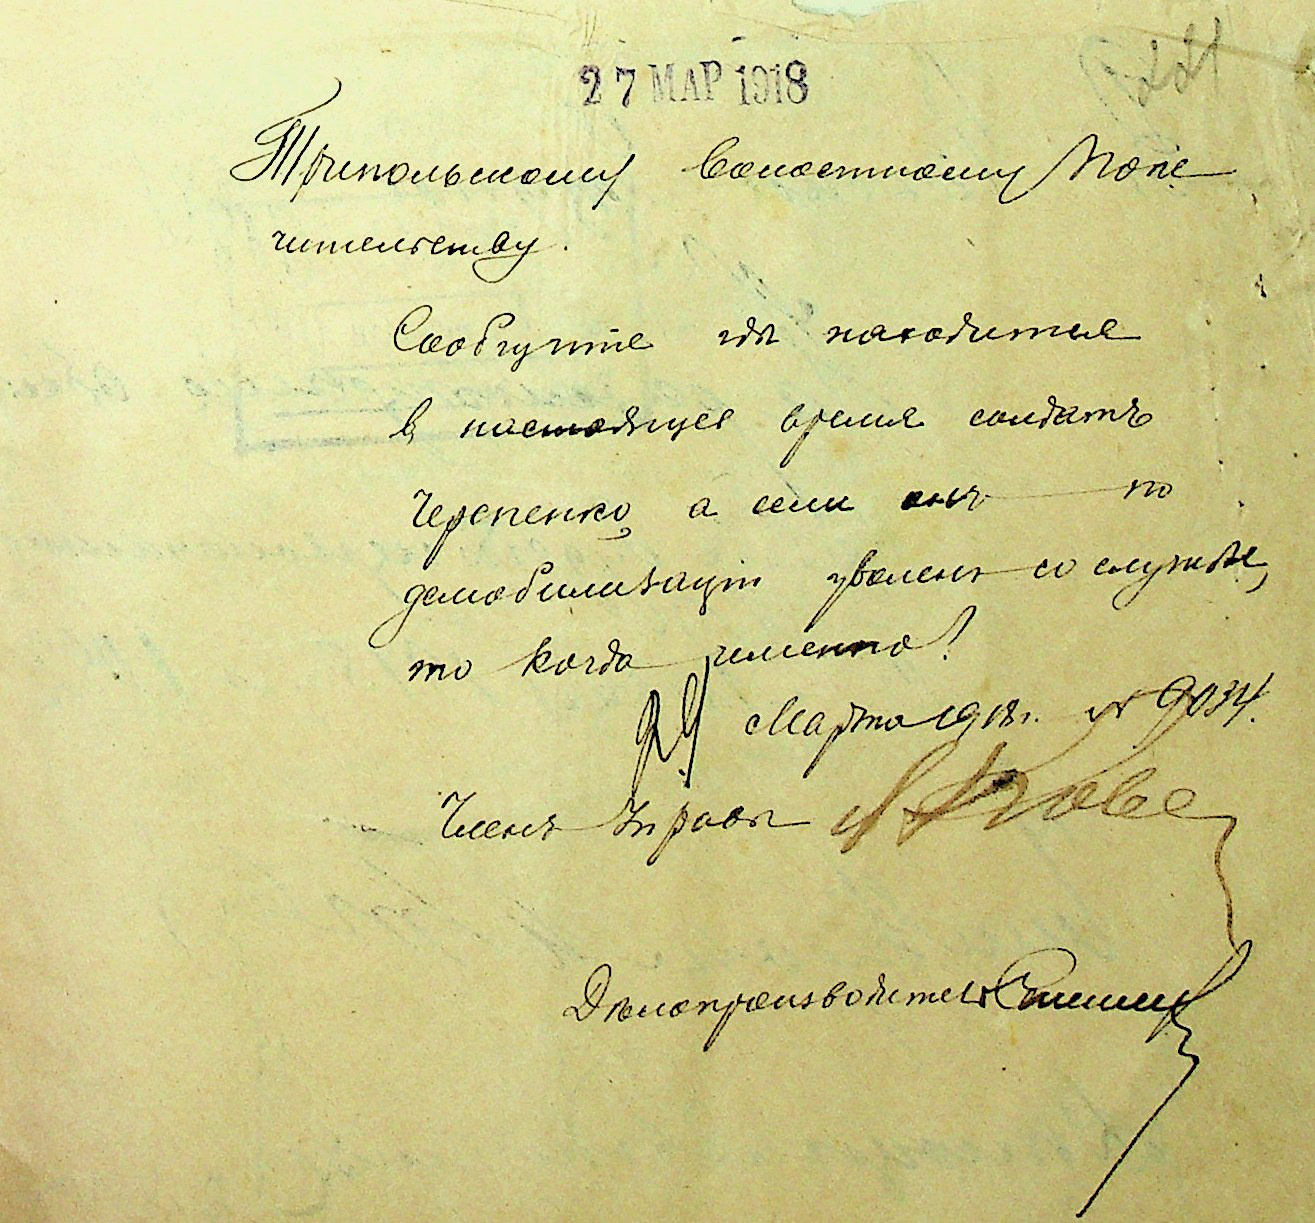 27 МАР 1918
Трипольскому волостному Попе
чительству.
Сообщите гдѣ находится
в настоящее время солдатъ
Черепенко, а если онъ по
демобилизаціи уволенъ со службы,
то когда именно?
Марта 1918 г. № 9034.
Членъ Управы
Дѣлопроизводитель